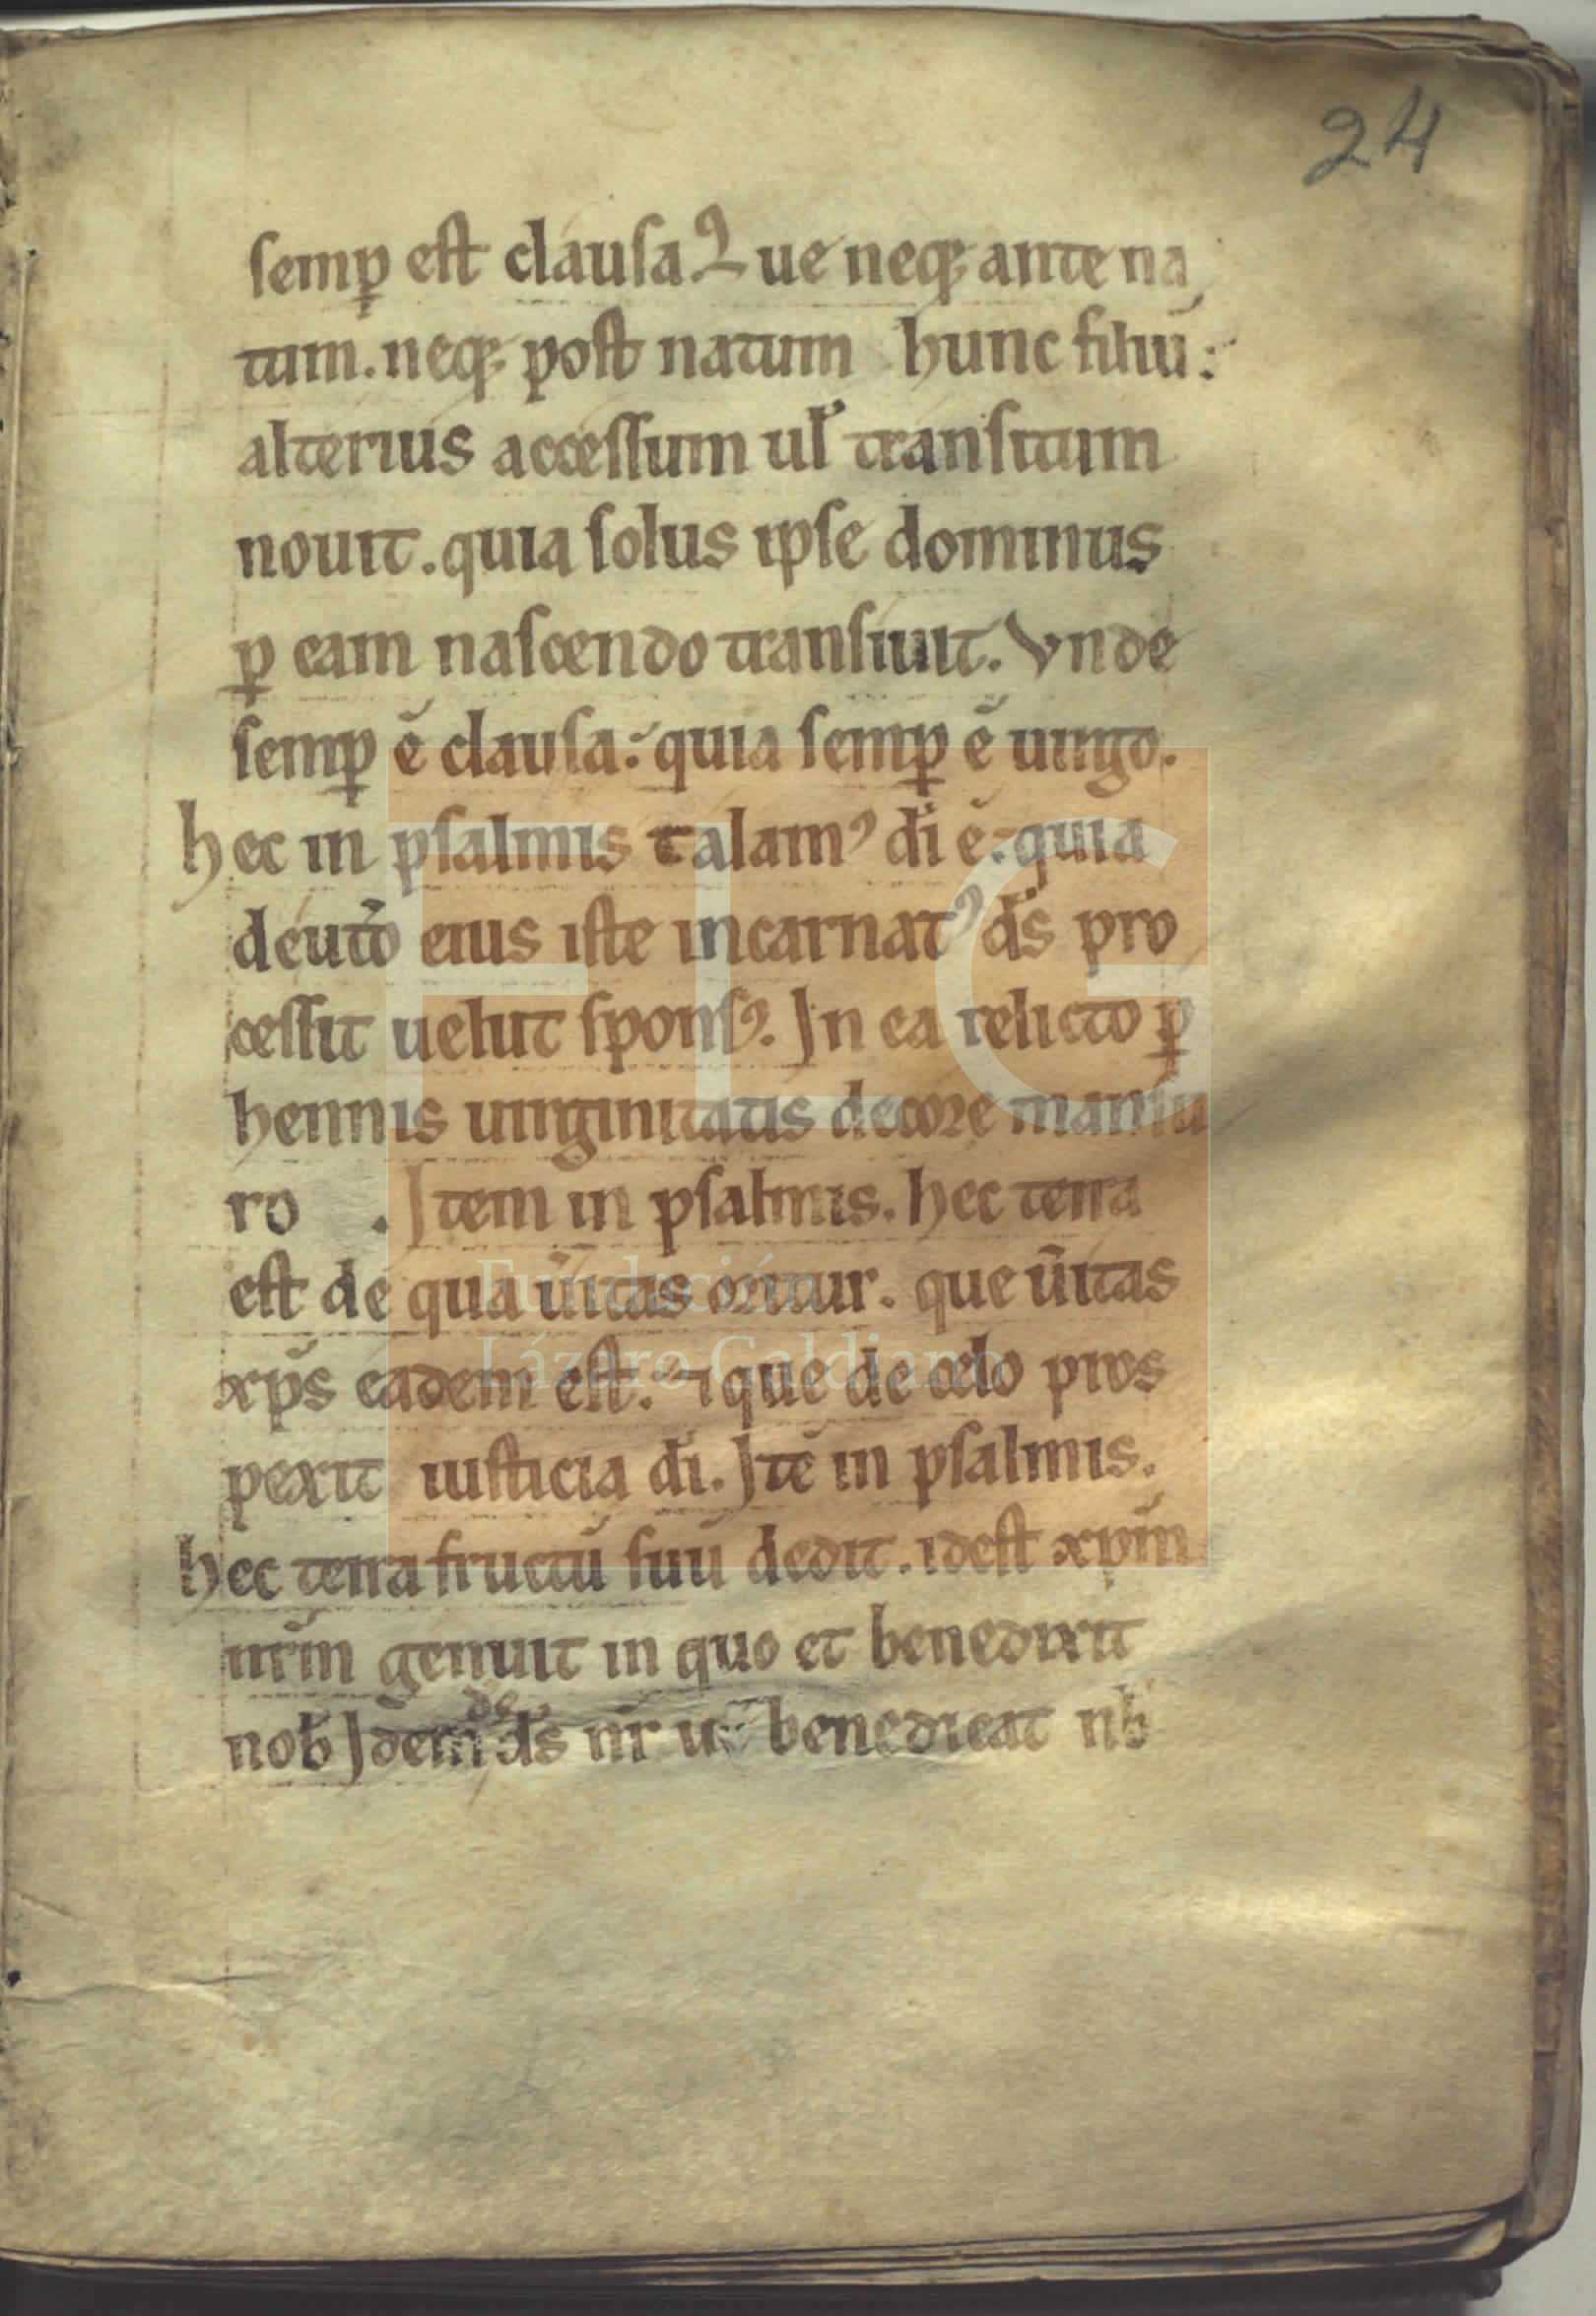 24
semꝑ est clausa. Que neqꝫ ante na
tum. neqꝫ post natum hunc filiū:
alterius accessum ul̄ transitum
nouit. quia solus ipse dominus
ꝑ eam nascendo transiuit. Vnde
semꝑ ē clausa: quia semꝑ ē uirgo.
hec in psalmis talamꝰ dī ē: quia
de ut̄o eius iste incarnatꝰ ds̄ pro
cessit uelut sponsꝰ. In ea relicto ꝑ
hennis uirginitatis decore mansu
ro . Item in psalmis. hec terra
est de qua ūitas oritur. que ūitas
xp̄s eadem est. ⁊ que de celo pros
pexit iusticia dī. Itē in psalmis.
hec terra fructū suū dedit. idest xp̄m
nr̄m genuit in quo et benedixit
nob̄ Idem ds̄ nr̄ benedicat nb̄
FLG
Fundación
Lázaro Galdiano